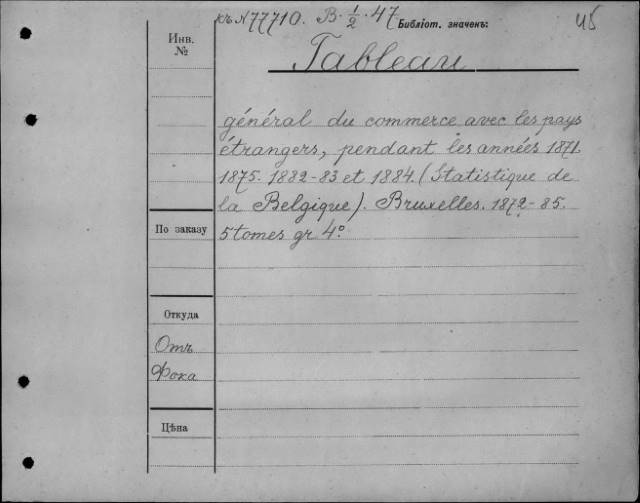 къ N 77710. B. 1/2. 47 Библіот. значекъ: 45
Инв. №
Tableau
général du commerce avec les pays
étrangers, pendant les années 1871.
1875. 1882-83 et 1884. (Statistique de
la Belgique). Bruxelles. 1872-85.
По заказу 5 tomes gr 4º
Откуда
Отъ
Фока
Цѣна